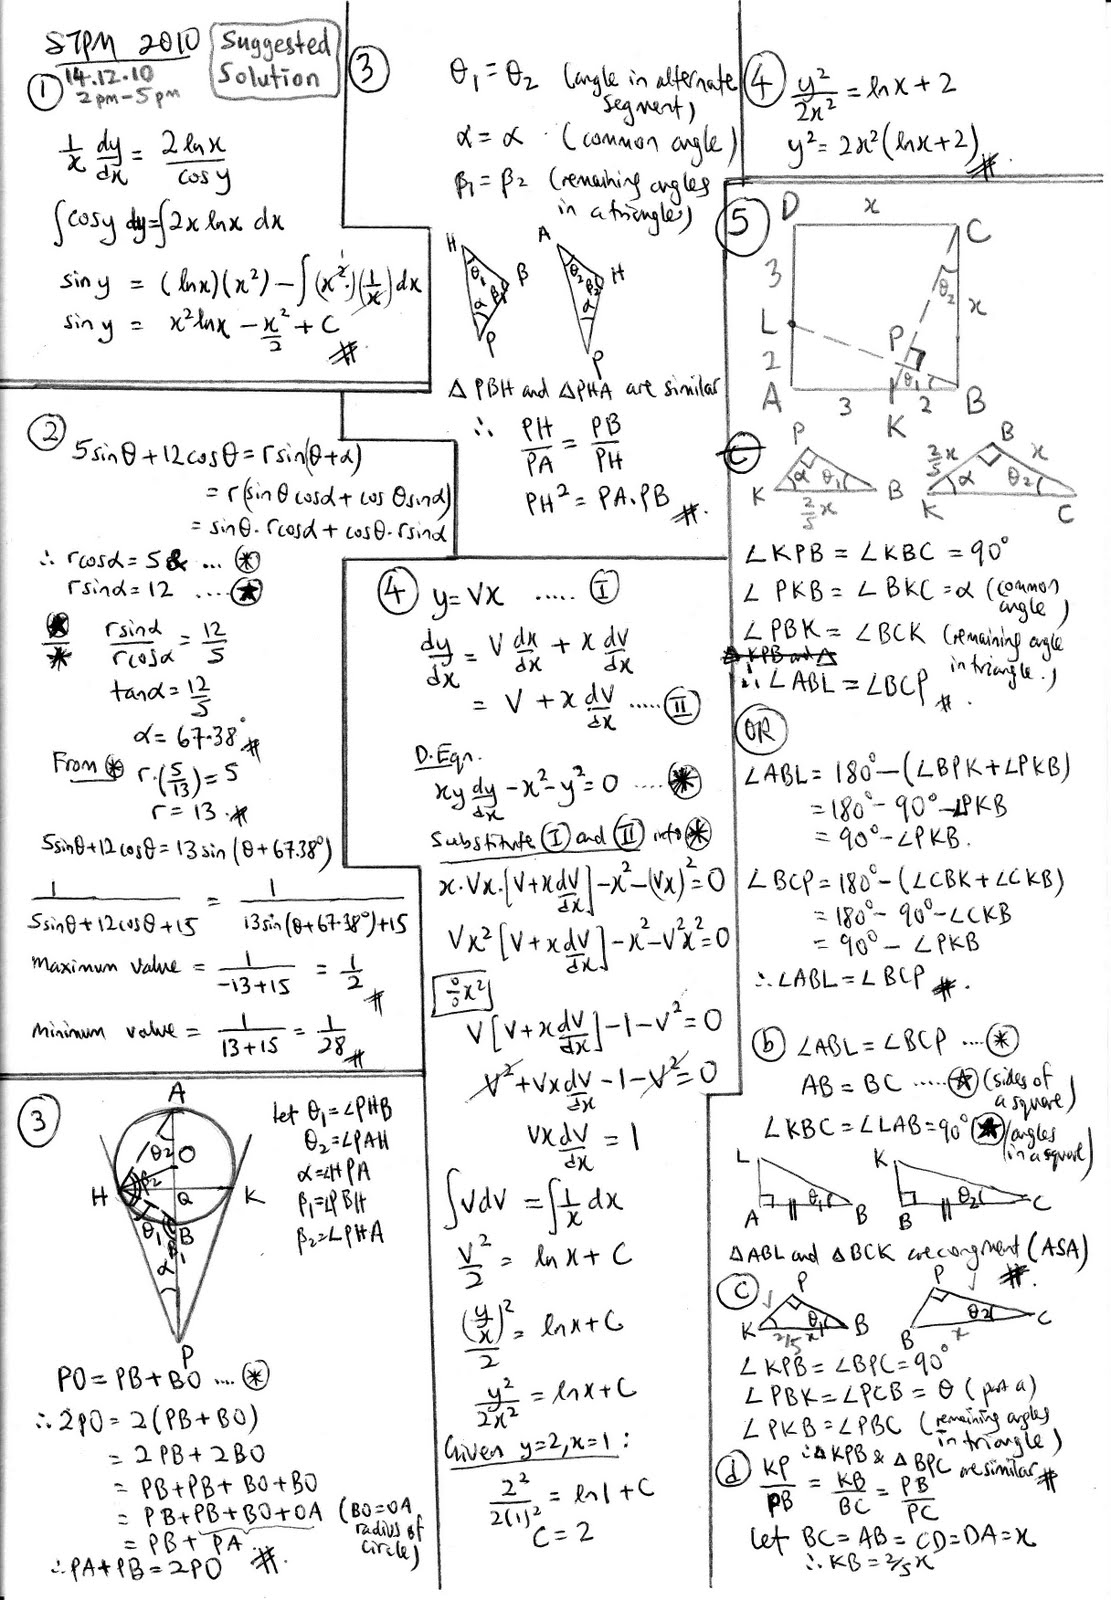 STPM 2010
14.12.10
2pm-5pm
Suggested
Solution
①
1/x dy/dx = 2 ln x / cos y
∫cos y dy = ∫2x ln x dx
sin y = (ln x)(x²) - ∫(x²)(1/x) dx
sin y = x² ln x - x²/2 + C #
②
5 sinθ + 12 cosθ = r sin(θ+α)
= r(sinθ cosα + cosθ sinα)
= sinθ. r cosα + cosθ. r sinα
∴ r cosα = 5 & ... ⊛
r sinα = 12 .... ★
★/⊛ r sinα / r cosα = 12/5
tanα = 12/5
α = 67.38° #
From ⊛ r.(5/13) = 5
r = 13 . #
5 sinθ + 12 cosθ = 13 sin (θ + 67.38°)
1 / 5sinθ+12cosθ+15 = 1 / 13sin(θ+67.38°)+15
Maximum value = 1 / -13+15 = 1/2 #
Minimum value = 1 / 13+15 = 1/28 #
③
A
θ2
O
β2
H
Q
K
θ1
B
β1
α
P
let θ1 = ∠PHB
θ2 = ∠PAH
α = ∠HPA
β1 = ∠PBH
β2 = ∠PHA
PO = PB + BO .... ⊛
∴ 2PO = 2(PB + BO)
= 2PB + 2BO
= PB + PB + BO + BO
= PB + PB + BO + OA (BO = OA radius of circle)
= PB + PA.
∴ PA + PB = 2PO #.
③
θ1 = θ2 (angle in alternate segment)
α = α . (common angle)
β1 = β2 (remaining angles in a triangles)
H
θ1
B
β1
α
P
A
θ2
β2
H
α
P
△ PBH and △PHA are similar
∴ PH/PA = PB/PH
PH² = PA.PB #.
④ y = Vx ..... Ⅰ
dy/dx = V dx/dx + x dV/dx
= V + x dV/dx ..... Ⅱ
D.Eqn.
xy dy/dx - x² - y² = 0 .... ⊛
Substitute Ⅰ and Ⅱ into ⊛
x.Vx.[V + x dV/dx] - x² - (Vx)² = 0
Vx² [V + x dV/dx] - x² - V²x² = 0
÷x²
V[V + x dV/dx] - 1 - V² = 0
V² + Vx dV/dx - 1 - V² = 0
Vx dV/dx = 1
∫V dV = ∫1/x dx
V²/2 = ln x + C
(y/x)²/2 = ln x + C
y²/2x² = ln x + C
Given y=2, x=1 :
2²/2(1)² = ln 1 + C
C = 2
④ y²/2x² = ln x + 2
y² = 2x² (ln x + 2) #.
⑤
D
x
C
3
θ2
x
L
P
2
θ1
A
3
K
2
B
P
α
θ1
K
B
2/5 x
B
2/5 x
x
α
θ2
K
C
∠KPB = ∠KBC = 90°
∠PKB = ∠BKC = α (common angle)
∠PBK = ∠BCK (remaining angle in triangle.)
△ KPB and △
∴ ∠ABL = ∠BCP #.
OR
∠ABL = 180° - (∠BPK + ∠PKB)
= 180° - 90° - ∠PKB
= 90° - ∠PKB.
∠BCP = 180° - (∠CBK + ∠CKB)
= 180° - 90° - ∠CKB
= 90° - ∠PKB
∴ ∠ABL = ∠BCP #.
ⓑ ∠ABL = ∠BCP .... ⊛
AB = BC ..... ★ (sides of a square)
∠KBC = ∠LAB = 90° ★ (angles in a square)
L
θ1
A
B
K
θ2
B
C
△ABL and △BCK are congruent (ASA) #.
ⓒ
P
θ1
K
2/5 x
B
P
θ2
B
x
C
∠KPB = ∠BPC = 90°
∠PBK = ∠PCB = θ (part a)
∠PKB = ∠PBC (remaining angles in triangle)
∴ △KPB & △BPC are similar #
ⓓ KP/PB = KB/BC = PB/PC
Let BC = AB = CD = DA = x
∴ KB = 2/5 x